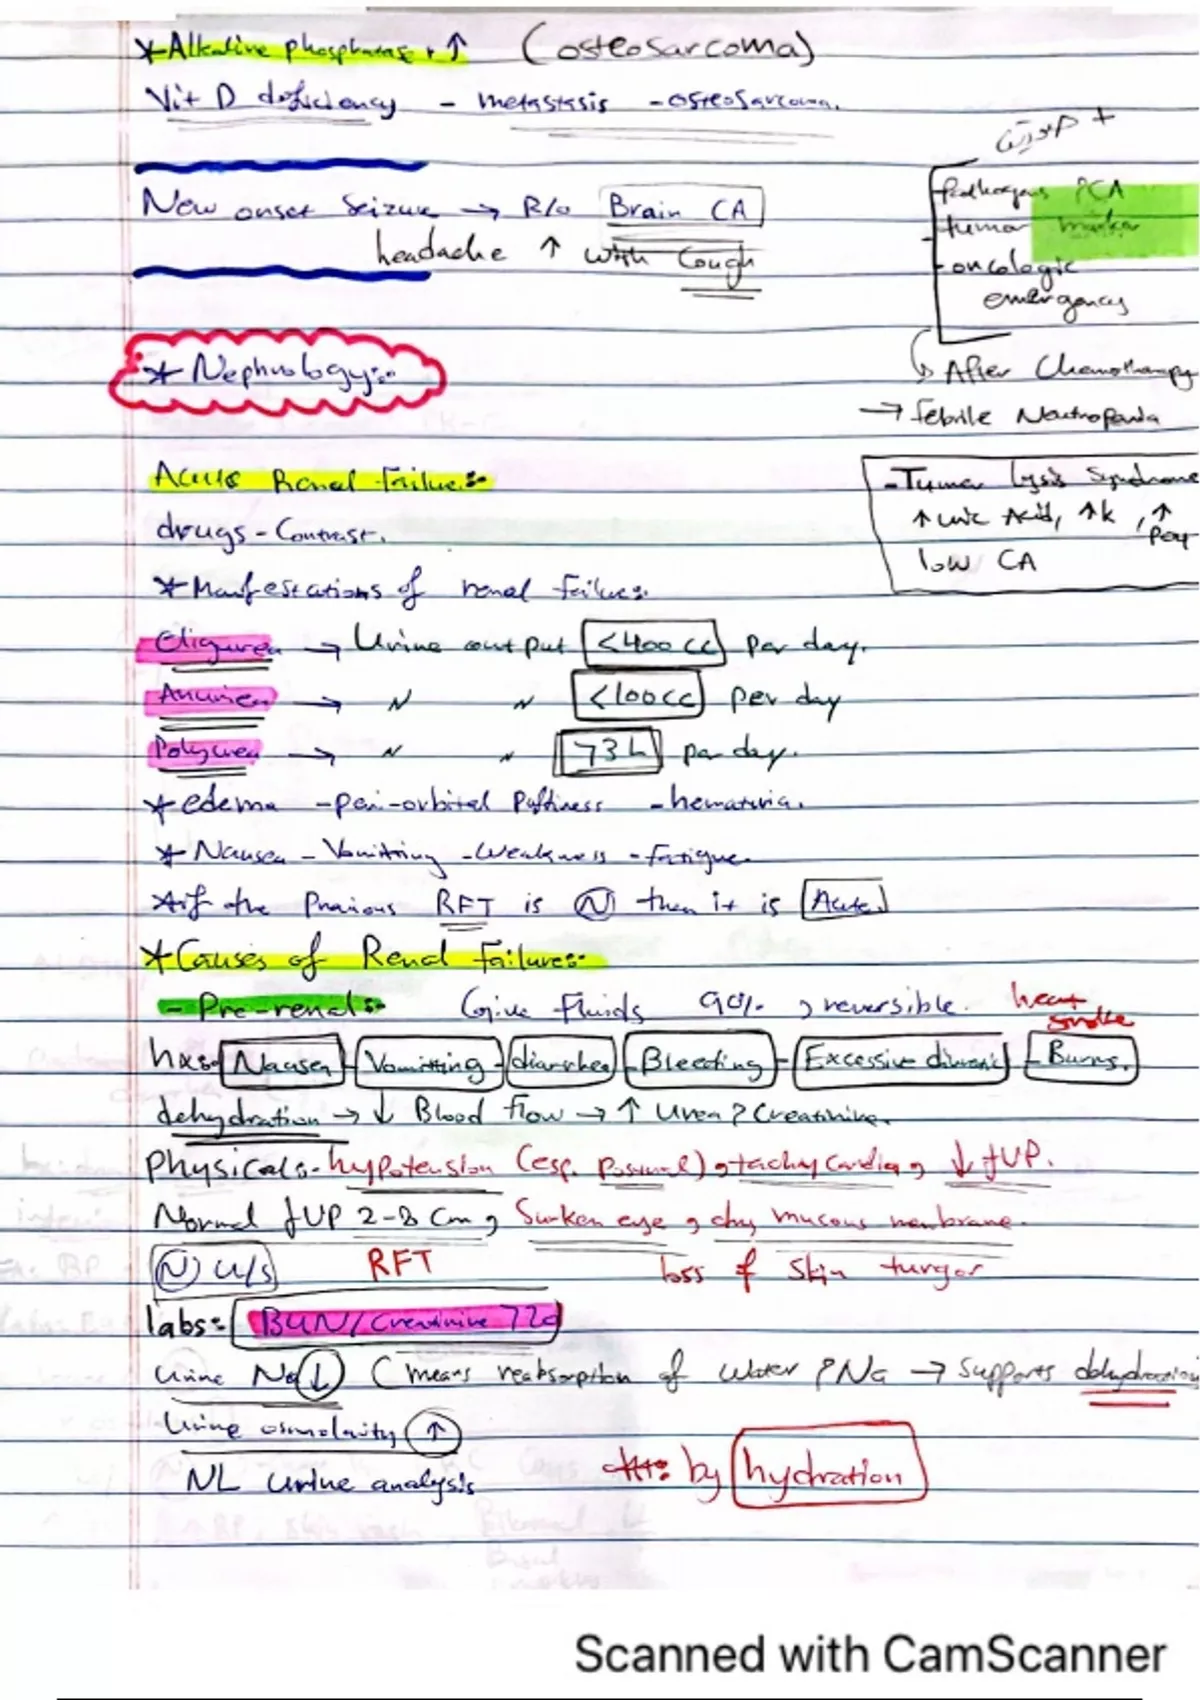 *Alkaline phosphatase ↑ (osteosarcoma)
Vit D deficiency - metastasis - osteosarcoma.
New onset Seizure → R/o Brain CA
headache ↑ with Cough
Pathogens PCA
tumor marker
- oncologic
emergency
After Chemotherapy
→ febrile Neutropenia
* Nephrology:-
- Tumor lysis Syndrome
↑ uric Acid, ↑k, ↑
low CA
Acute Renal Failure:-
drugs - Contrast.
* Manifestations of renal failure:
Oliguria → Urine output <400 cc per day.
Anuria → 〃 〃 <100cc per day
Polyurea → 〃 〃 >3L per day.
* edema - peri-orbital Puffiness - hematuria.
* Nausea - Vomitting - Weakness - fatigue
* if the Previous RFT is (N) then it is Acute.
* Causes of Renal Failure:-
- Pre-renal:- Give Fluids 90% , reversible. heat stroke
hx:- Nausea - Vomitting - diarrhea - Bleeding - Excessive diuresis - Burns.
dehydration → ↓ Blood flow → ↑ Urea & Creatinine.
Physical:- hypotension (esp. Postural), tachycardia, ↓ JVP.
Normal JVP 2-8 Cm, Sunken eye, dry mucous membrane.
(N) U/S RFT loss of Skin turgor
labs:- BUN/Creatinine >20
Urine Na ↓ (means reabsorption of water & Na → Supports dehydration
Urine osmolarity ↑
NL Urine analysis by hydration
Scanned with CamScanner